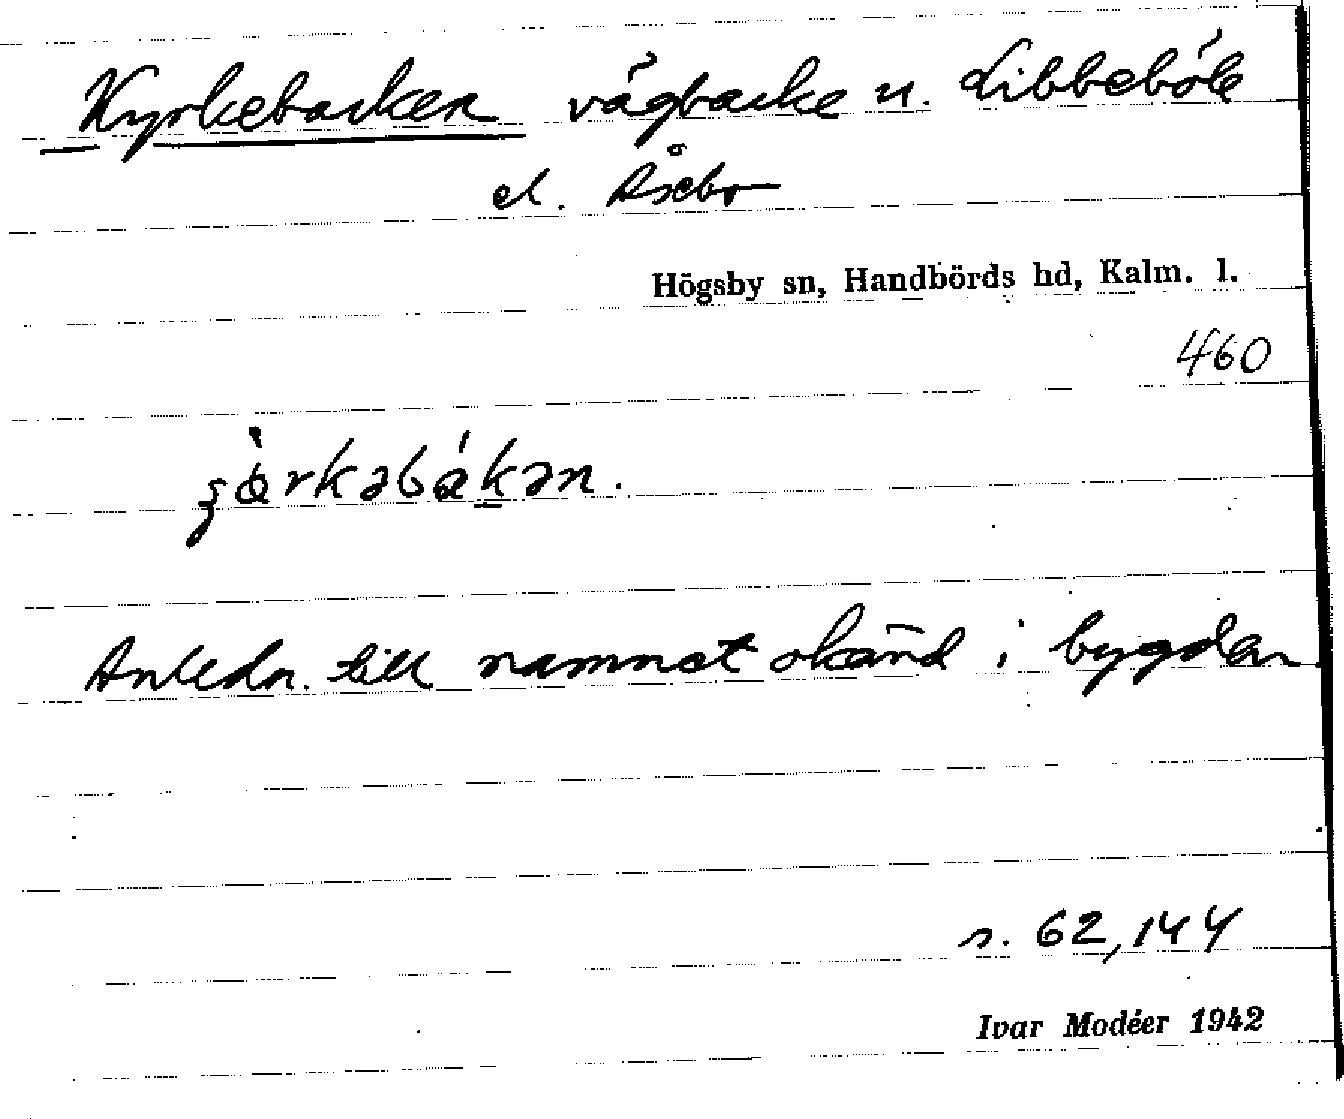 Kyrkebacken vägbacke u. Libbeböle
el. Åsebo
Högsby sn, Handbörds hd, Kalm. l.
460
Anledn. till namnet okänd i bygden
s. 62, 144
Ivar Modéer 1942